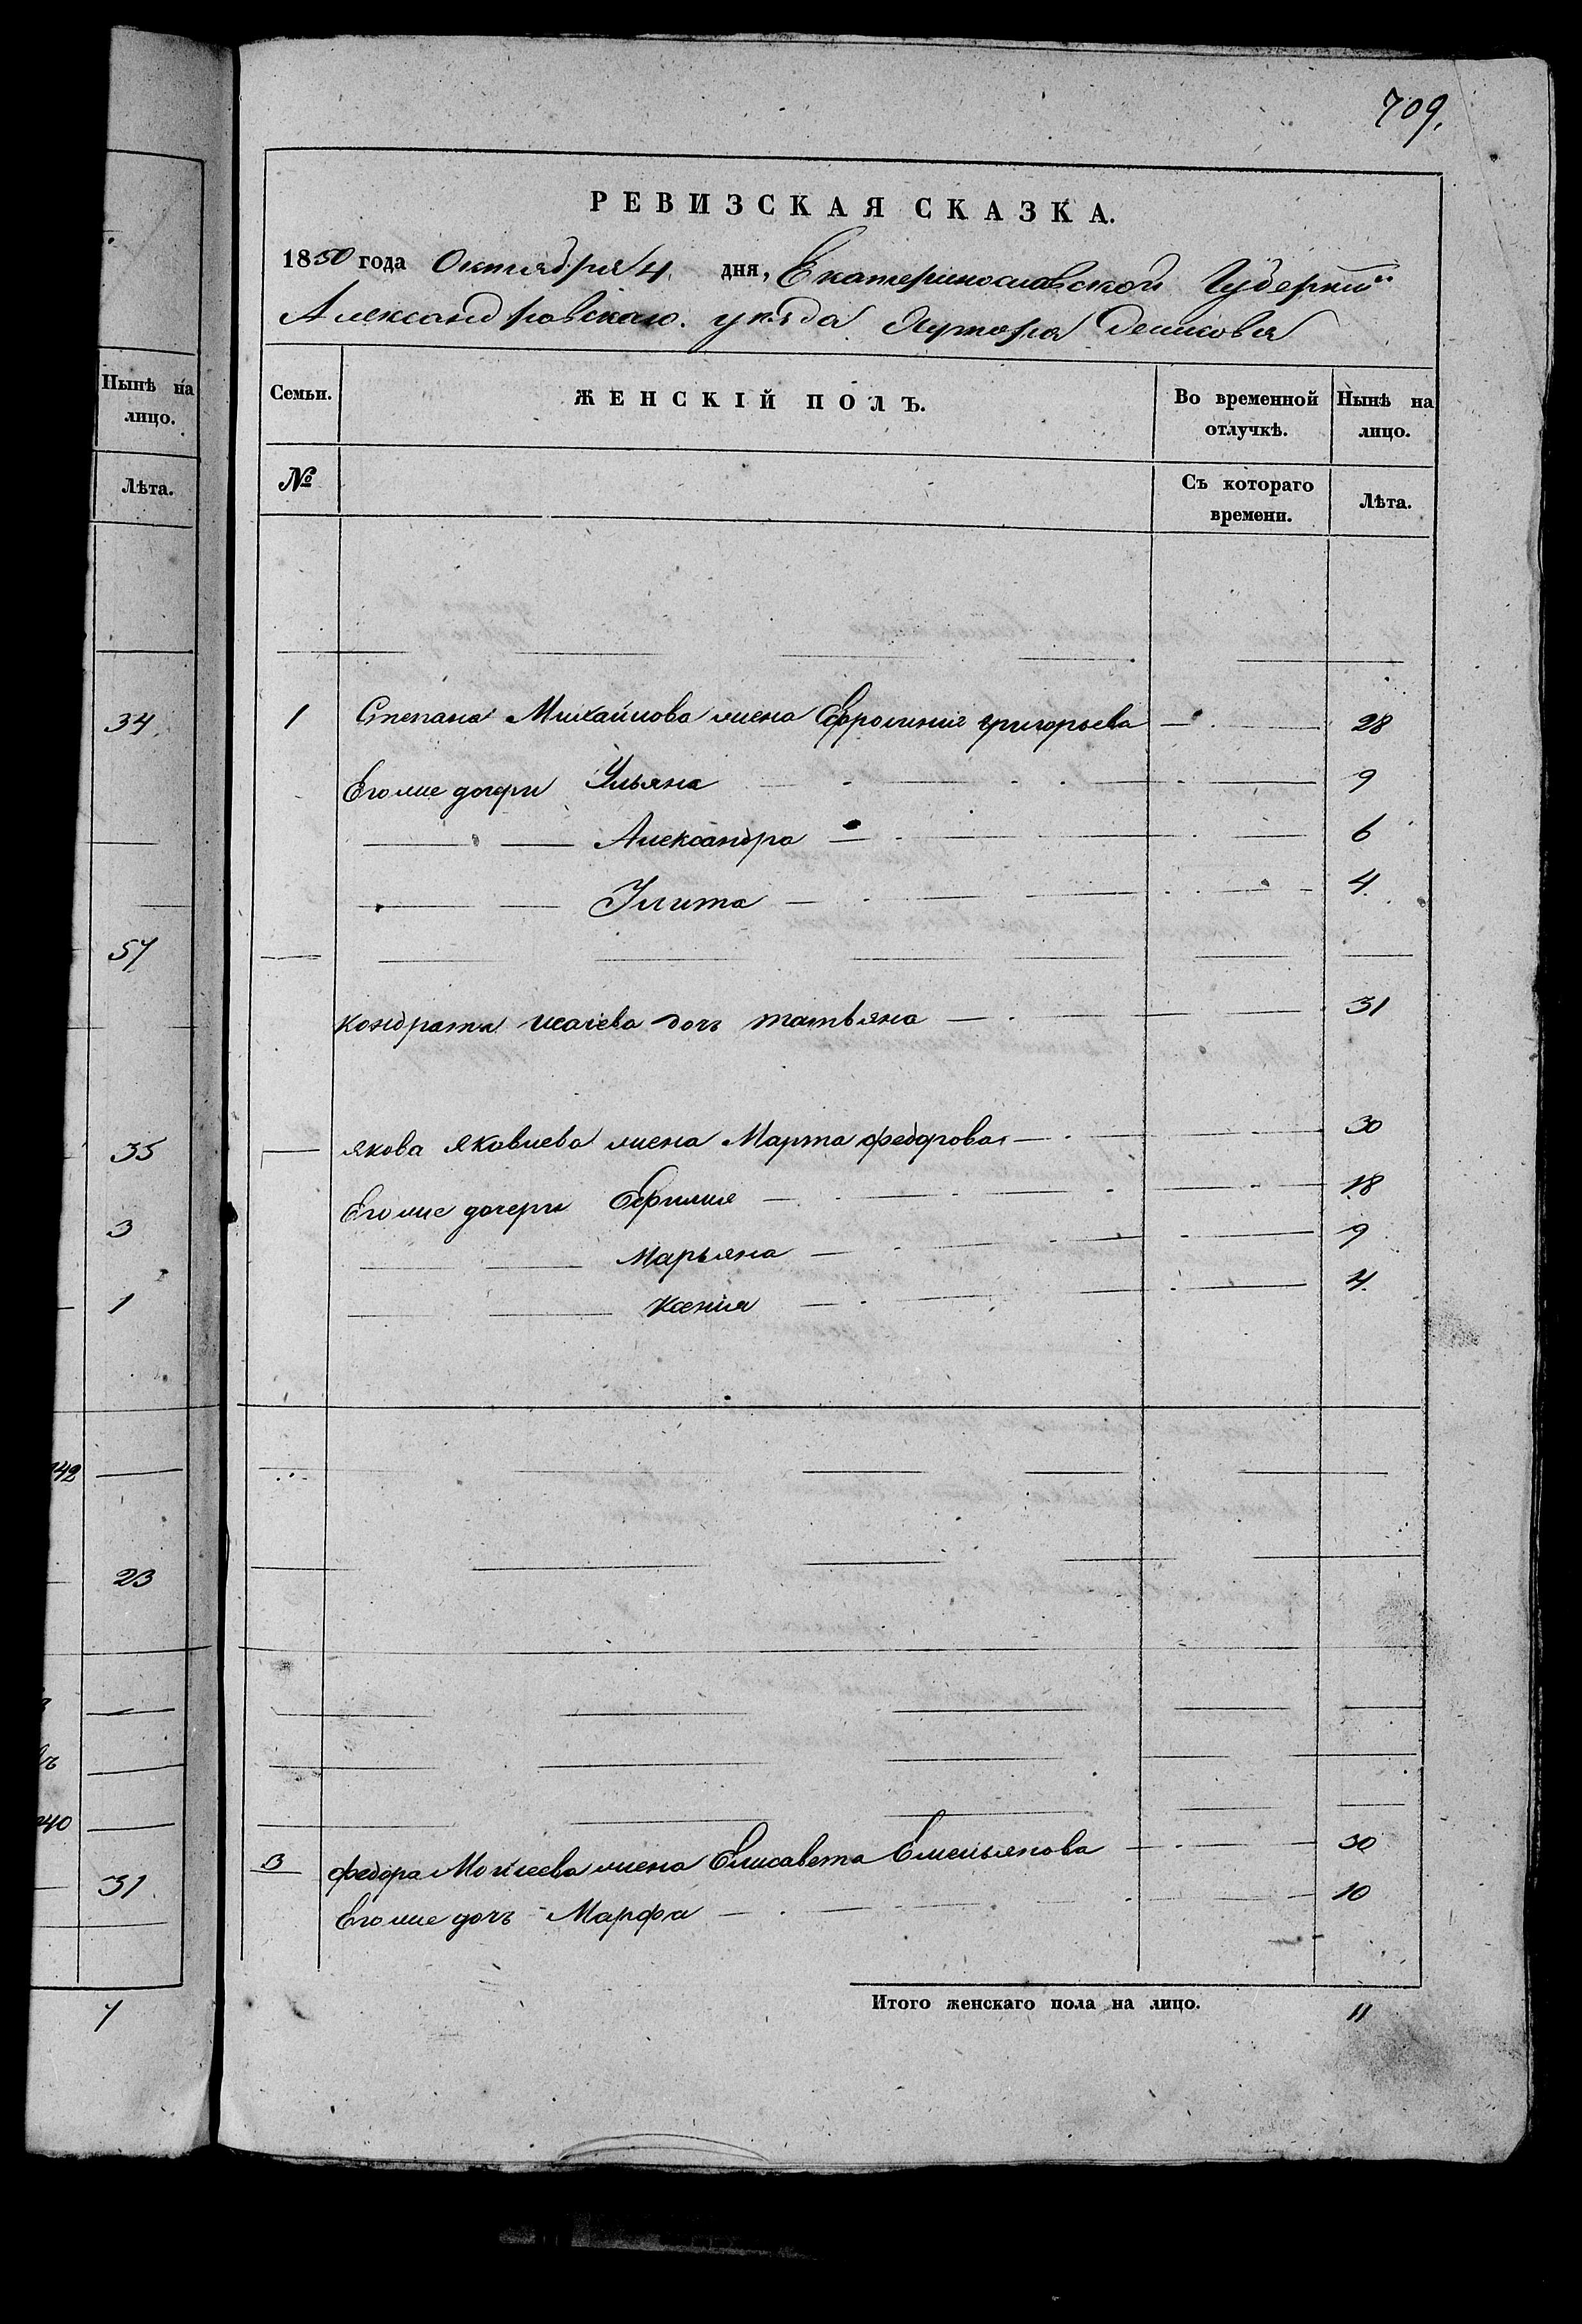 709.
РЕВИЗСКАЯ СКАЗКА.
1850 года Октября 4. дня, Екатеринославской Губерніи
Александровскаго. уѣзда Хутора
Нынѣ на
лицо.
Лѣта.
34.
57
35
3
1
142
23
въ
140
31.
7
Семьи.
ЖЕНСКІЙ ПОЛЪ.
Во временной
отлучкѣ.
Нынѣ на
лицо.
№
Съ котораго
времени.
Лѣта.
1 Степана Михайлова жена Ефросинія григорьева 28
Его же дочери Ульяна 9
Александра 6
Улита 4.
Кондратія Исаева дочь татьяна 31
якова яковлева жена Марта федорова 30
Его же дочери Ефимия 18
Марьяна 9
Ксенія 4.
3 федора Моисеева жена Елисавета Емельянова 30
Его же дочь Марфа 10
Итого женскаго пола на лицо. 11